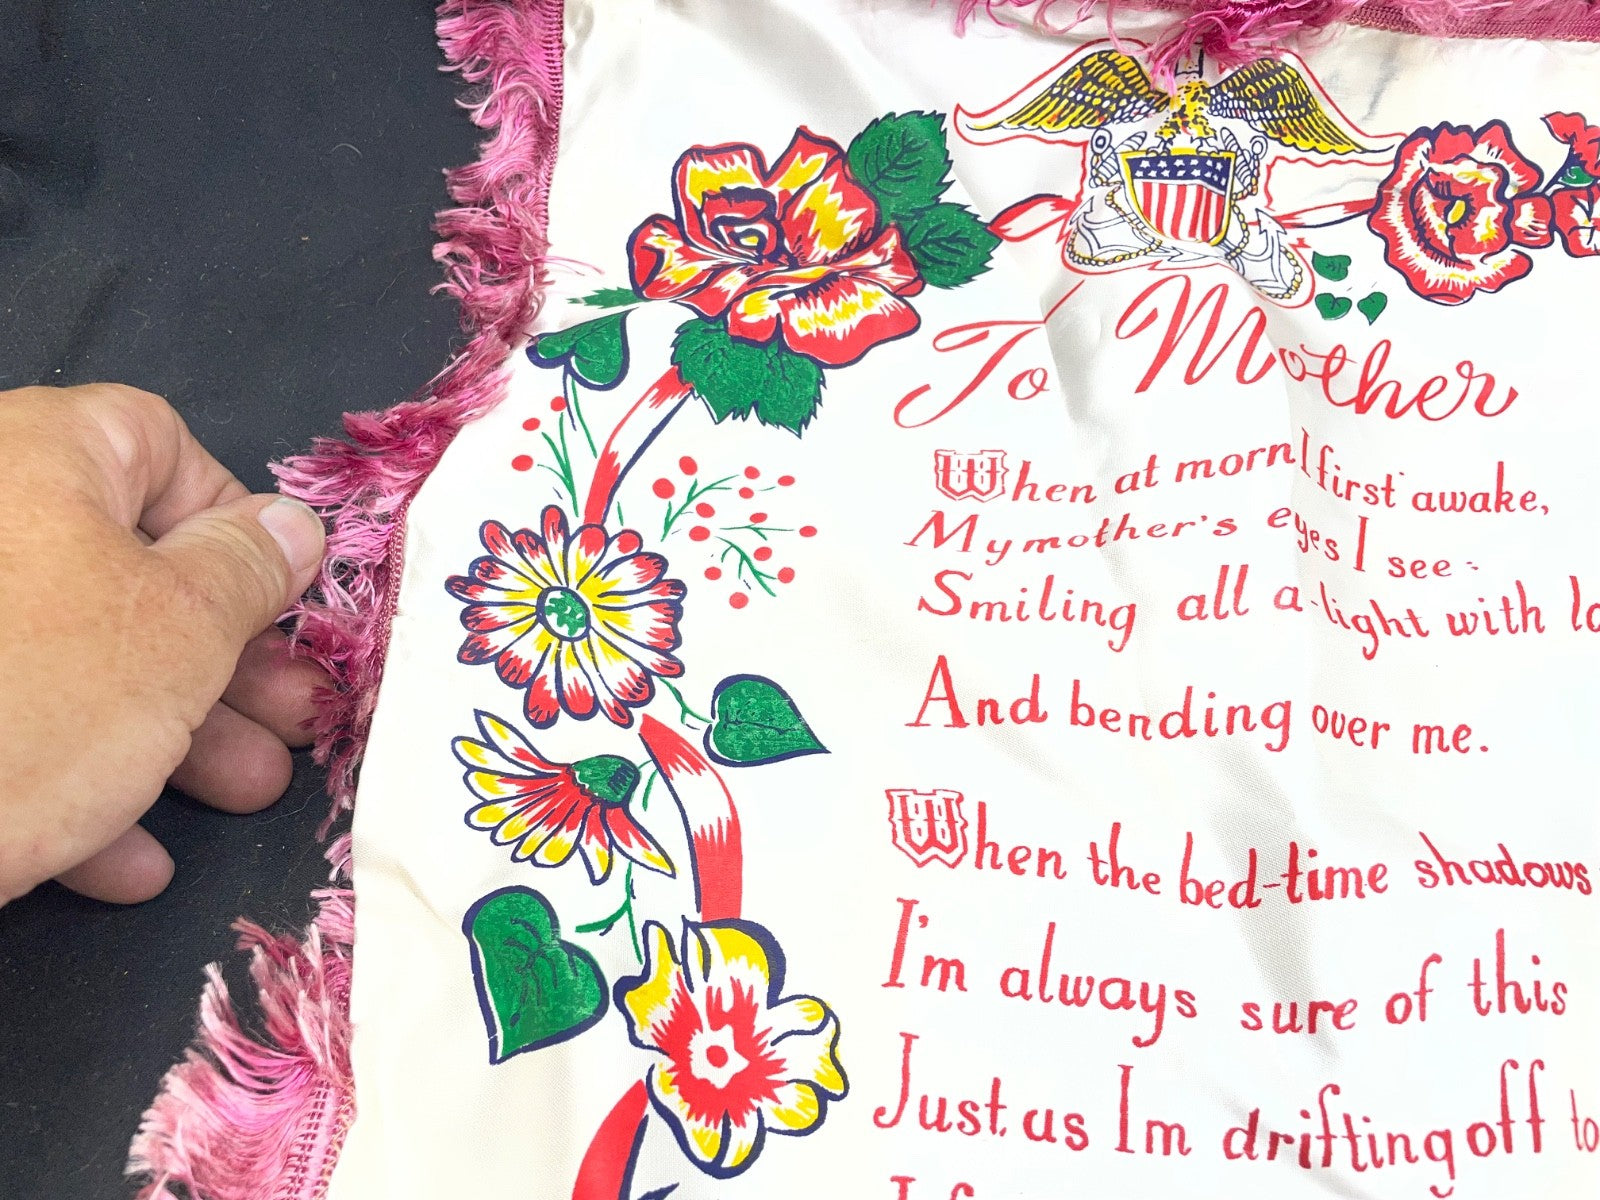 To Mother
When at morn I first awake,
My mother's eyes I see:
Smiling all a-light with
And bending over me.
When the bed-time shadows
I'm always sure of this
Just as Im drifting off to